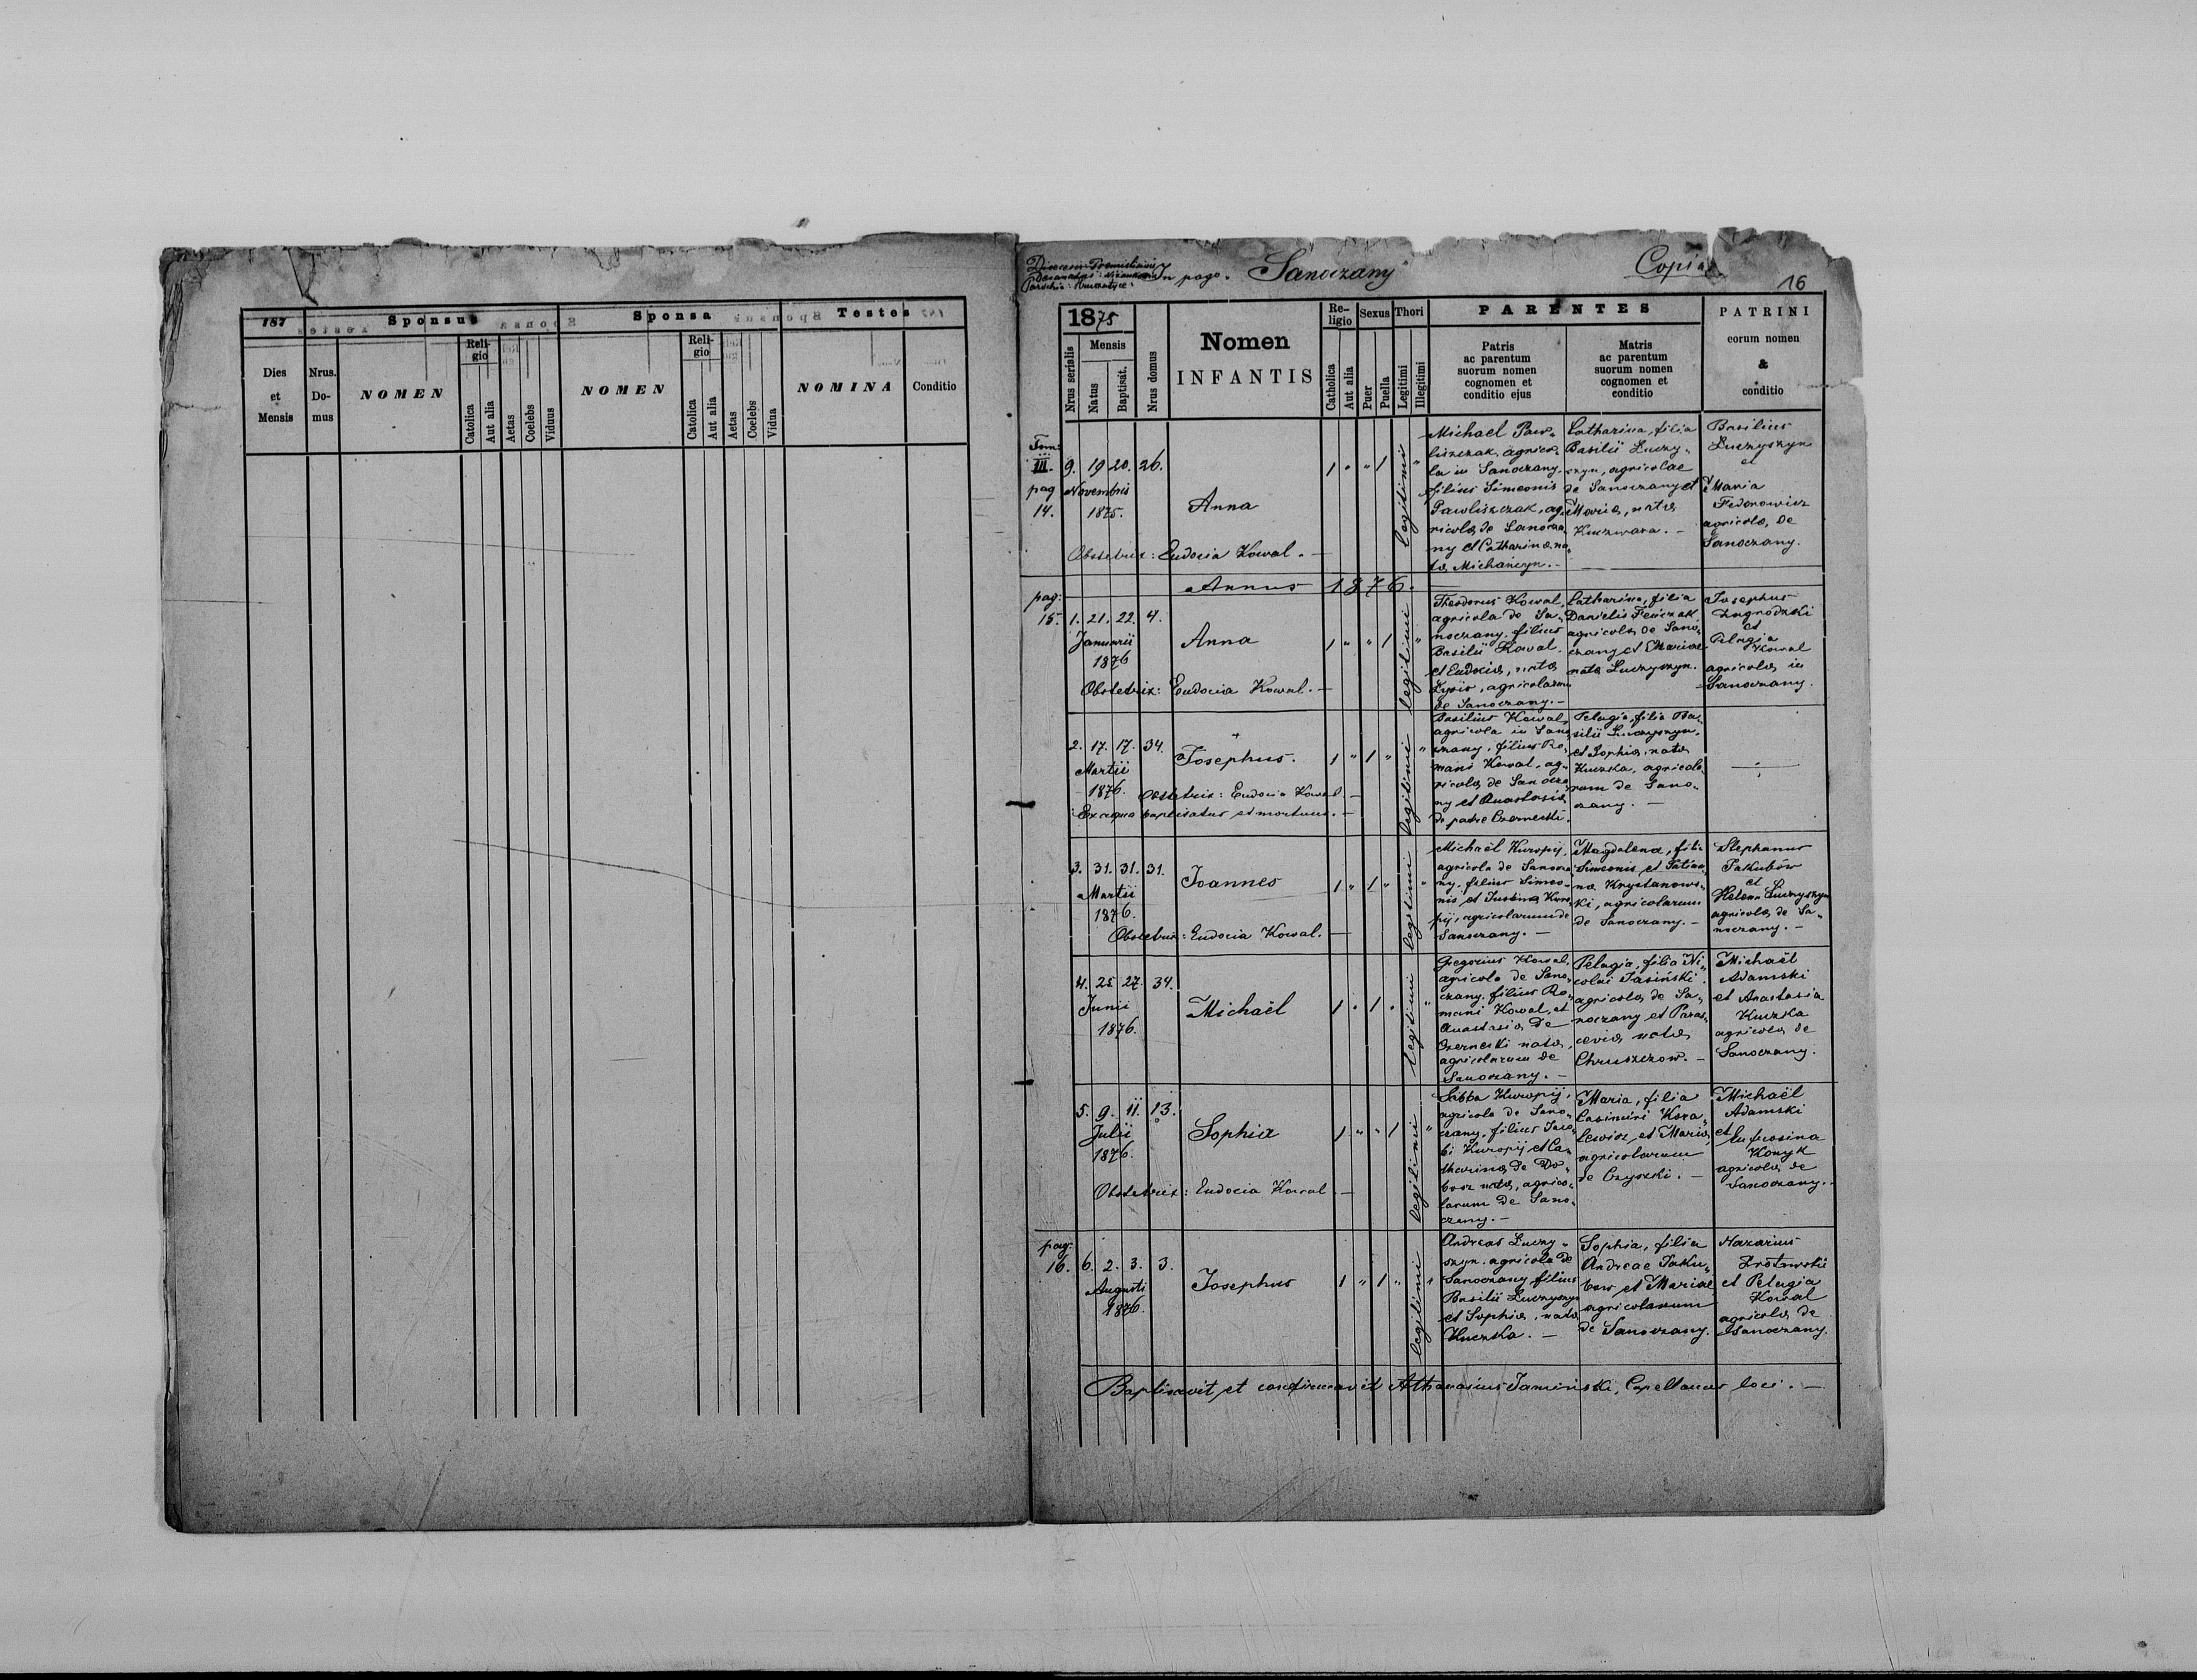 187
Sponsus
Sponsa
Testes
Dies et Mensis
Nrus. Domus
NOMEN
Religio
Catolica
Aut alia
Aetas
Coelebs
Viduus
NOMEN
Religio
Catolica
Aut alia
Aetas
Coelebs
Vidua
NOMINA
Conditio
In pago. Sanoczany
Copia
16
1875
Nrus serialis
Mensis
Natus
Baptisat.
Nrus domus
Nomen
INFANTIS
Re-
ligio
Catholica
Aut alia
Sexus
Puer
Puella
Thori
Legitimi
Illegitimi
PARENTES
Patris
ac parentum
suorum nomen
cognomen et
conditio ejus
Matris
ac parentum
suorum nomen
cognomen et
conditio
PATRINI
eorum nomen
&
conditio
Tom:
III.
pag
14.
9. 19 20. 26.
Novembris
1875.
Anna
1 " " 1
legitimi
"
Obstetrix: Eudocia Kowal. —
Michael Paw-
liszczak, agrico-
la in Sanoczany.
filius Simeonis
Pawliszczak, ag-
ricola de Sanocza
ny et Catharina na-
ta Michańcyn. -
Catharina, filia
Basilii Luczy-
szyn, agricolae
de Sanoczany et
Maria, nata
Kuczwara. -
Basilius
Luczyszyn
et
Maria
Fedorowicz
agricola, de
Sanoczany.
Annus 1876.
pag:
15.
1. 21. 22. 4.
Januarii
1876
Anna
1 " " 1
legitimi
"
Obstetrix: Eudocia Kowal. —
Theodorus Kowal,
agricola de Sa-
noczany, filius
Basilii Kowal
et Eudocia, nata
Lysio, agricolarum
de Sanoczany. -
Catharina, filia
Danielis Fenczak
agricola de Sano-
czany et Mariae
nata Luczyszyn.
Josephus
Zagrodzki
et
Pelagia
Kowal
agricola in
Sanoczany.
2. 17. 17. 34.
Martii
1876.
Josephus.
1 " 1 "
legitimi
"
Obstetrix: Eudocia Kowal —
Ex aqua baptisatus et mortuus. —
Basilius Kowal,
agricola in Sano-
czany, filius Ro-
mani Kowal, ag-
ricola de Sanocza
ny et Anastasia
de patre Czernecki.
Pelagia, filia Ba-
silii Luczyszyn,
et Sophia, nata
Kuczka, agricola-
rum de Sano-
czany. —
3. 31. 31. 31.
Martii
1876.
Joannes
1 " 1 "
legitimi
"
Obstetrix: Eudocia Kowal. —
Michael Kuropij,
agricola de Sanocza
ny, filius Simeo-
nis et Justina Kuro-
pij, agricolarum de
Sanoczany. —
Magdalena, filia
Simeonis et Tatian-
na Krystanows-
ki, agricolarum
de Sanoczany. -
Stephanus
Jakubów
et
Helena Luczyszyn
agricola, de Sa-
noczany. -
4. 25. 27. 34.
Junii
1876.
Michaël
1 " 1 "
legitimi
"
Gregorius Kowal,
agricola de Sano-
czany, filius Ro-
mani Kowal, et
Anastasia de
Czernecki nata,
agricolarum de
Sanoczany. —
Pelagia, filia Ni-
colai Jasiński
agricola, de Sa-
noczany et Paras-
cevia nata
Chruszczow. -
Michaël
Adamski
et Anastasia
Kuczka
agricola de
Sanoczany.
5. 9. 11. 13.
Julii
1876.
Sophia
1 " " 1
legitimi
"
Obstetrix: Eudocia Kowal —
Sabba Kuropij,
agricola de Sano-
czany, filius Jaco-
bi Kuropij et Ca-
tharina de Do-
bosz nata, agrico-
larum de Sano-
czany. —
Maria, filia
Casimiri Kora-
lewicz et Maria,
agricolarum
de Czyszki. —
Michaël
Adamski
et
Eufrosina
Konyk
agricola, de
Sanoczany.
pag:
16.
6. 2. 3. 3.
Augusti
1876.
Josephus
1 " 1 "
legitimi
"
Andreas Luczy-
szyn, agricola de
Sanoczany filius
Basilii Luczyszyn
et Sophia, nata
Kuczka. —
Sophia, filia
Andreae Jaku-
bow et Mariae
agricolarum
de Sanoczany.
Nazarius
et Pelagia
Kowal
agricola, de
Sanoczany.
Baptisavit et confirmavit Athanasius Jamiński, Capellanus loci. —